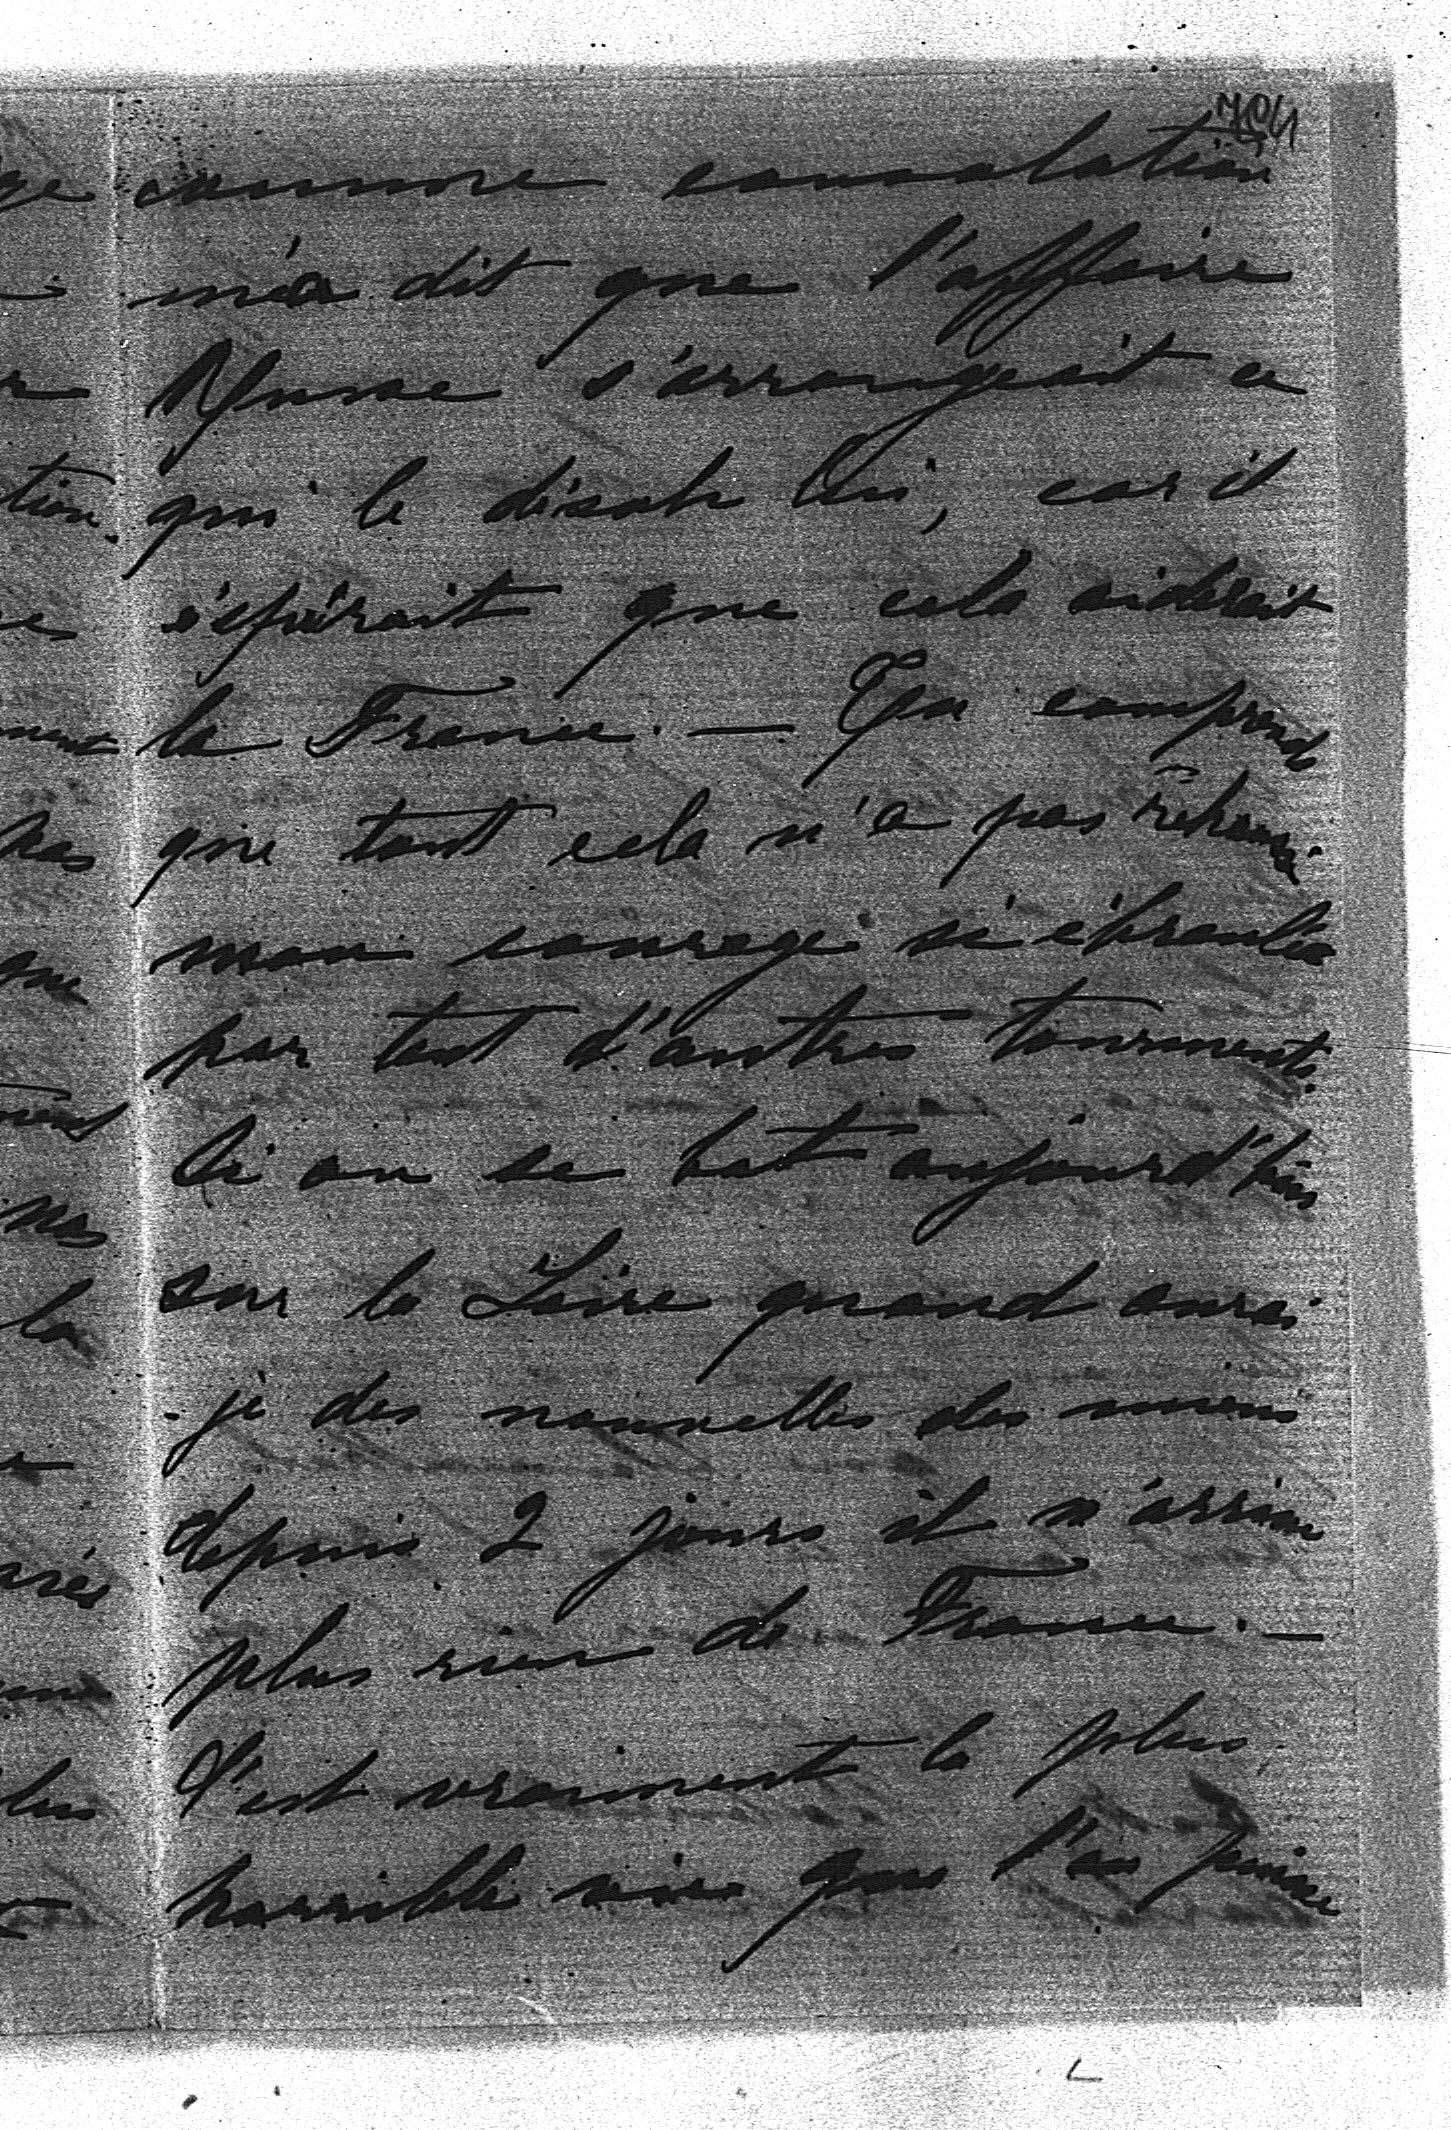 comme consolation
m'a dit que l'affaire
Russe s'arrangeait ce
qui le désole lui, car il
éspérait que cela aiderait
la France. — Tu comprends
que tout cela n'a pas rehaussé
mon courage si ébranlée
par tant d'autres tourments.
Si on se bat aujourd'hui
sur la Loire quand aurai
je des nouvelles des miens
depuis 2 jours il n'arrive
plus rien de France. —
C'est vraiment la plus
horrible vie que l'on puisse